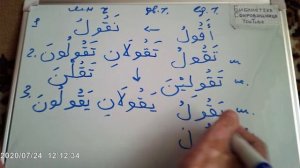 мн.ч дв.ч. ед.ч.
БИБЛИОТЕКА
СОКРОВИЩНИЦА
YouTube
1. أَقُولُ ← نَقُولُ
2. تَقُولُ تَقُولَانِ تَقُولُونَ м.
تَقُولِينَ ↓ تَقُلْنَ ж.
3. يَقُولُ يَقُولَانِ يَقُولُونَ м.
2020/07/24 12:12:34